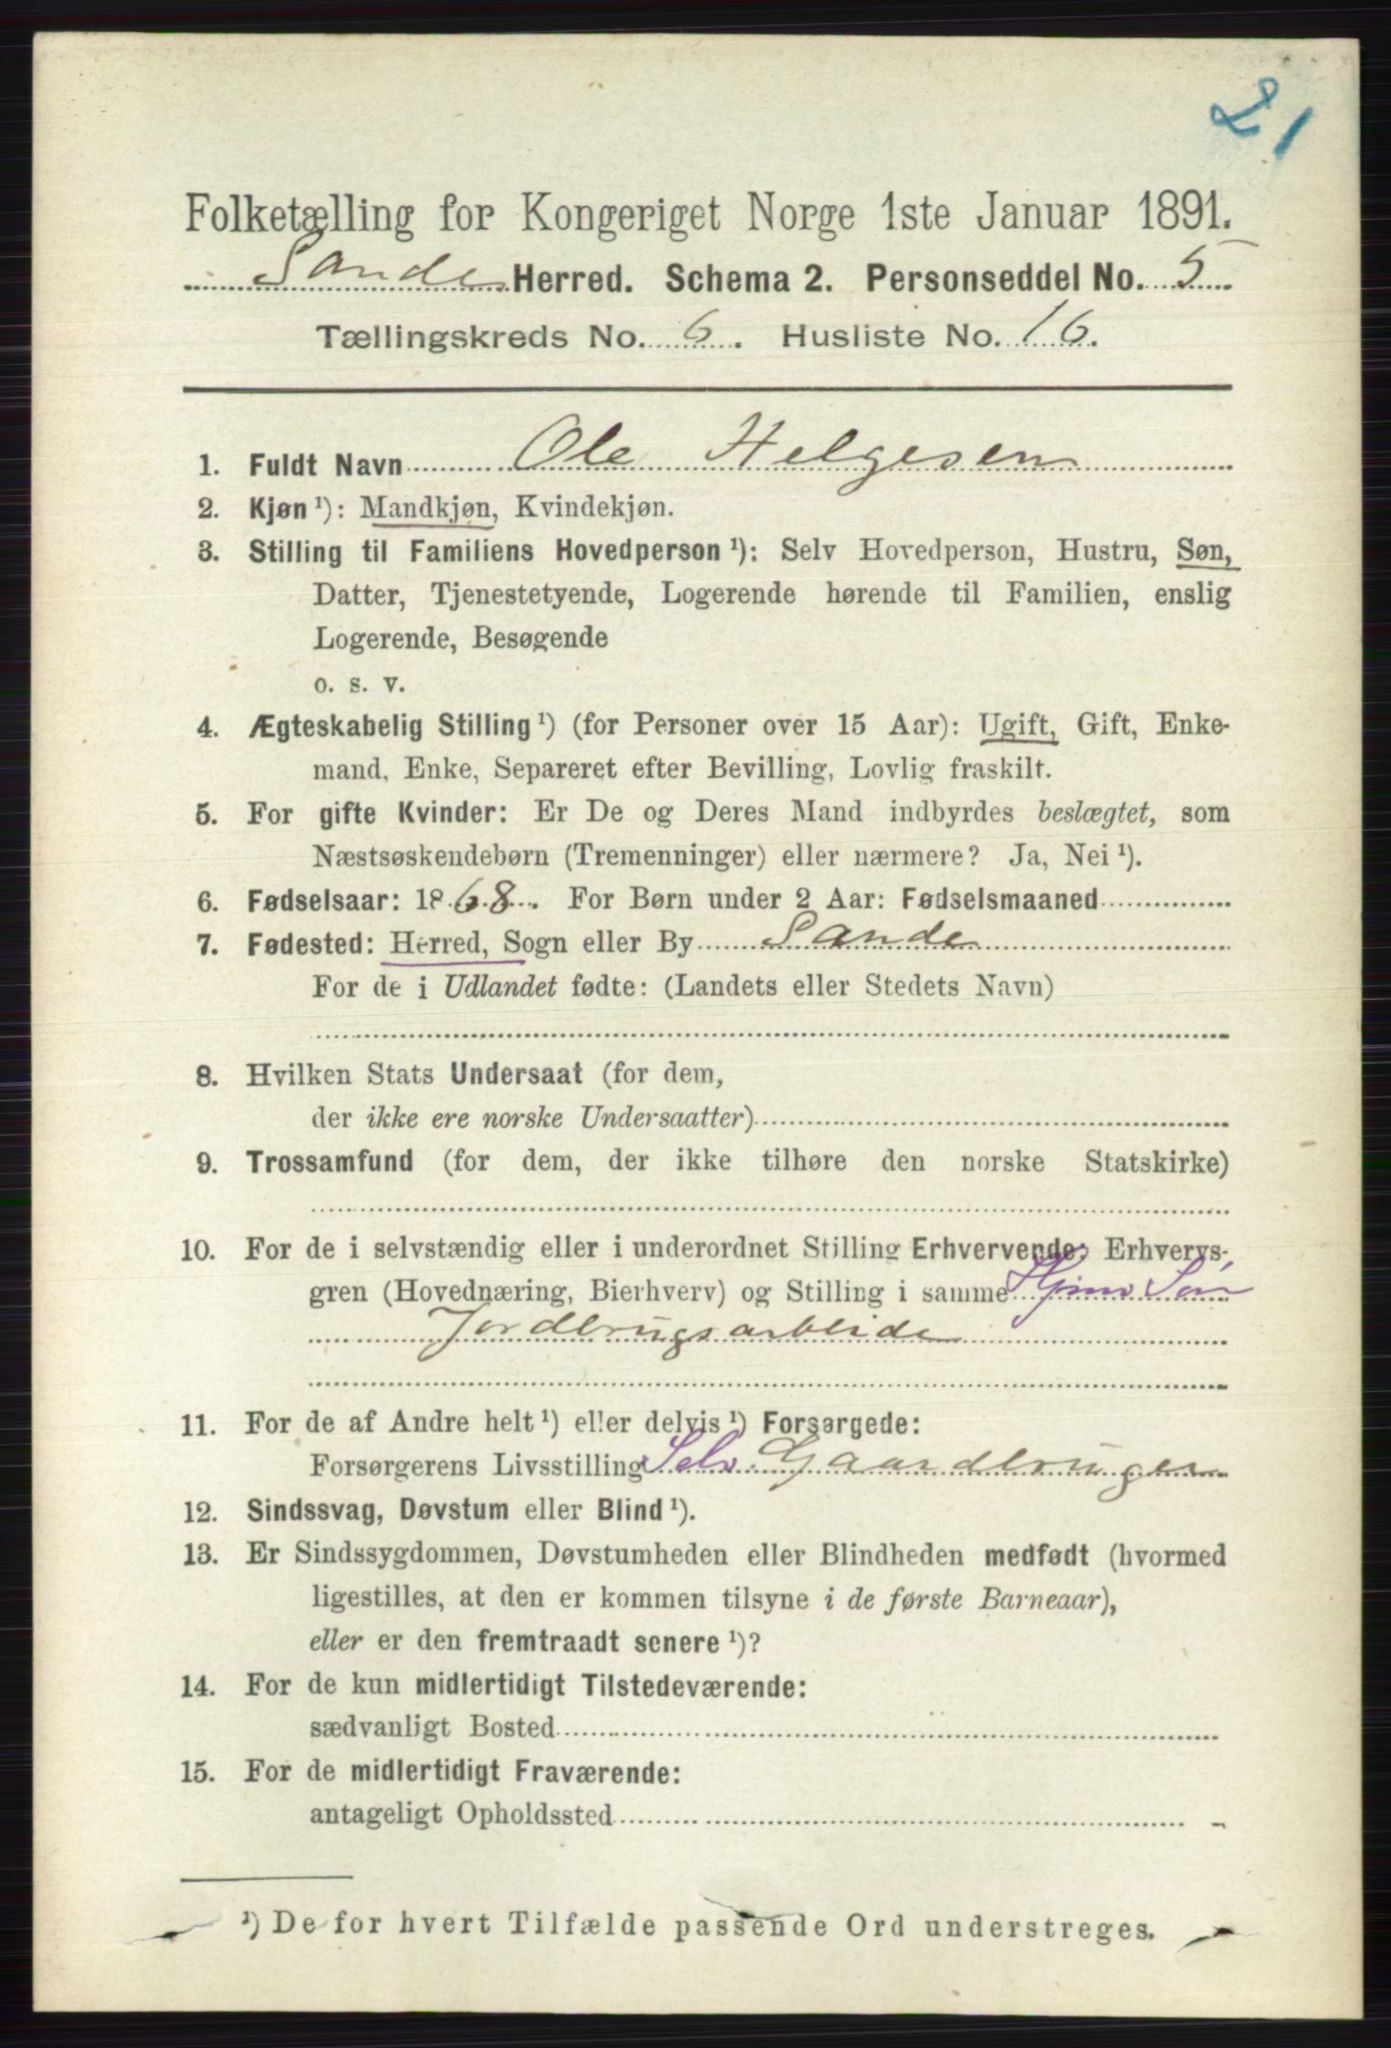 21
Folketælling for Kongeriget Norge 1ste Januar 1891.
Sande Herred. Schema 2. Personseddel No. 5
Tællingskreds No. 6. Husliste No. 16.
1. Fuldt Navn Ole Helgesen
2. Kjøn ¹): Mandkjøn, Kvindekjøn.
3. Stilling til Familiens Hovedperson ¹): Selv Hovedperson, Hustru, Søn,
Datter, Tjenestetyende, Logerende hørende til Familien, enslig
Logerende, Besøgende
o. s. v.
4. Ægteskabelig Stilling ¹) (for Personer over 15 Aar): Ugift, Gift, Enke-
mand, Enke, Separeret efter Bevilling, Lovlig fraskilt.
5. For gifte Kvinder: Er De og Deres Mand indbyrdes beslægtet, som
Næstsøskendebørn (Tremenninger) eller nærmere? Ja, Nei ¹).
6. Fødselsaar: 1868. For Børn under 2 Aar: Fødselsmaaned
7. Fødested: Herred, Sogn eller By Sande
For de i Udlandet fødte: (Landets eller Stedets Navn)
8. Hvilken Stats Undersaat (for dem,
der ikke ere norske Undersaatter)
9. Trossamfund (for dem, der ikke tilhøre den norske Statskirke)
10. For de i selvstændig eller i underordnet Stilling Erhvervende: Erhvervs-
gren (Hovednæring, Bierhverv) og Stilling i samme Hjmv Søn
Jordbrugsarbeide
11. For de af Andre helt ¹) eller delvis ¹) Forsørgede:
Forsørgerens Livsstilling Selv. Gaardbruger
12. Sindssvag, Døvstum eller Blind ¹).
13. Er Sindssygdommen, Døvstumheden eller Blindheden medfødt (hvormed
ligestilles, at den er kommen tilsyne i de første Barneaar),
eller er den fremtraadt senere ¹)?
14. For de kun midlertidigt Tilstedeværende:
sædvanligt Bosted
15. For de midlertidigt Fraværende:
antageligt Opholdssted
¹) De for hvert Tilfælde passende Ord understreges.